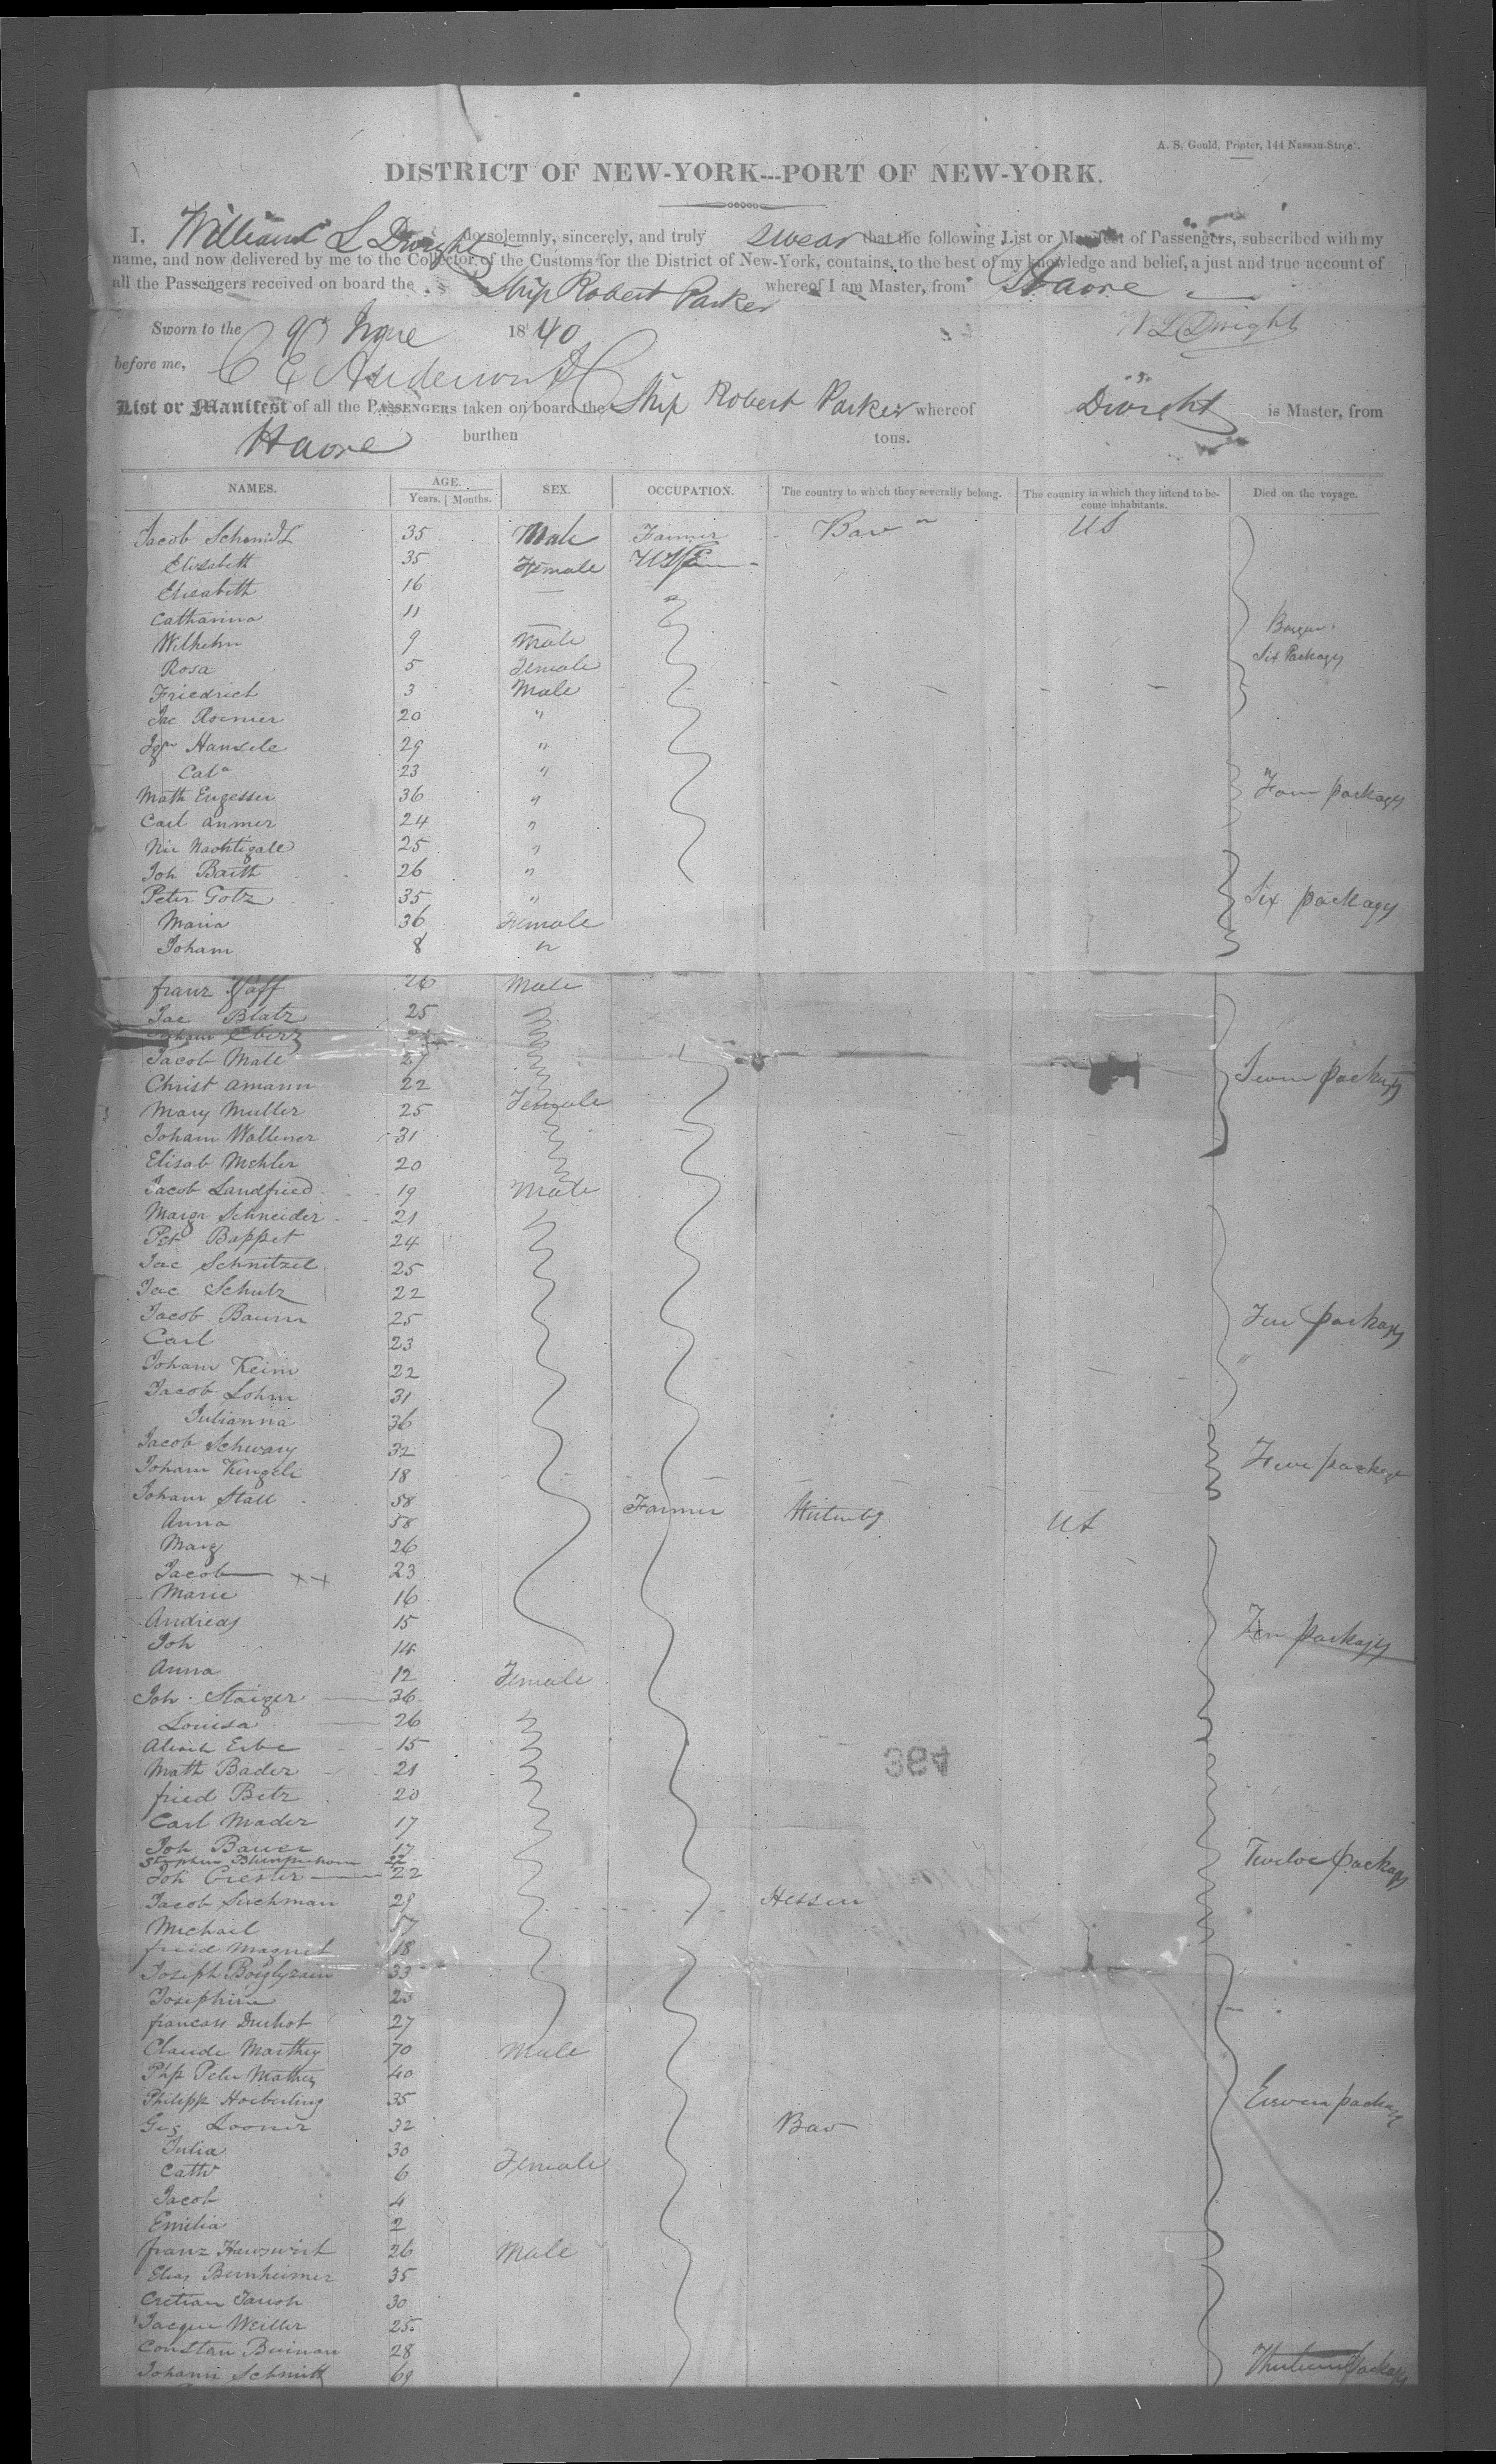 A. S. Gould, Printer, 144 Nassau-Street.
DISTRICT OF NEW-YORK---PORT OF NEW-YORK.
I, William L Dwight do solemnly, sincerely, and truly swear that the following List or Manifest of Passengers, subscribed with my
name, and now delivered by me to the Collector of the Customs for the District of New-York, contains, to the best of my knowledge and belief, a just and true account of
all the Passengers received on board the Ship Robert Parker whereof I am Master, from Havre
Sworn to the 1840 W L Dwight
before me, C E Anderson
List or Manifest of all the PASSENGERS taken on board the Ship Robert Parker whereof Dwight is Master, from
Havre burthen tons.
NAMES. AGE. Years. Months. SEX. OCCUPATION. The country to which they severally belong. The country in which they intend to become inhabitants. Died on the voyage.
Jacob Schmidt 35 Male Farmer Bav US
Elisabeth 35 Female Wife
Elisabeth 16
Catharina 11
Wilhelm 9 Male
Rosa 5 Female Six Packages
Friedrich 3 Male
Jac Roemer 20 "
Hansele 29 "
Cata 23 "
Math 36 " Four packages
Carl Anmer 24 "
Nic Nachtigale 25 "
Joh Barth 26 "
Peter Gotz 35 " Six packages
Maria 36 Female
Joham 8 "
franz Pfaff 26 Male
Jac Blatz 25
Joham Ebert
Jacob Male 27
Christ Amann 22
Mary Muller 25 Female
Joham Wallener 31
Elisab Mehler 20
Jacob Landfried 19 Male
Margr Schneider 21
Pet Bappet 24
Jac Schnitzel 25
Jac Schutz 22
Jacob Baum 25 packages
Carl 23
Joham Keim 22
Jacob Lohm 31
Julianna 36
Jacob Schwarz 32
Joham Kengele 18
Joham Stall 58 Farmer Wirtenbg US
Anna 58
Marg 26
Jacob x x 23
Marie 16
Andreas 15
Joh 14 Ten packages
Anna 12 Female
Joh Staiger 36
Louisa 26
Erbe 15
Math Bader 21
fried Betz 20
Carl Mader 17
Joh Bauer 17
Stephan 22 Twelve packages
Joh 22
Jacob Suchman 29 Hessen
Michael 57
fried Magnet 18
Joseph 33
Josephine 23
francois Duchot 27
Claude Marthey 70 Male
Php Peter Mathey 40
Philipp Hoeberling 35 Eleven packages
Geo Looner 32 Bav
Julia 30
Cath 6 Female
Jacob 4
Emilia 2
franz Hauswirt 26 Male
Elias Bernheimer 35
Cretian Jaush 30
Jacque Weiller 25
Constan 28
Johann Schmitt 69 Thirteen packages
394